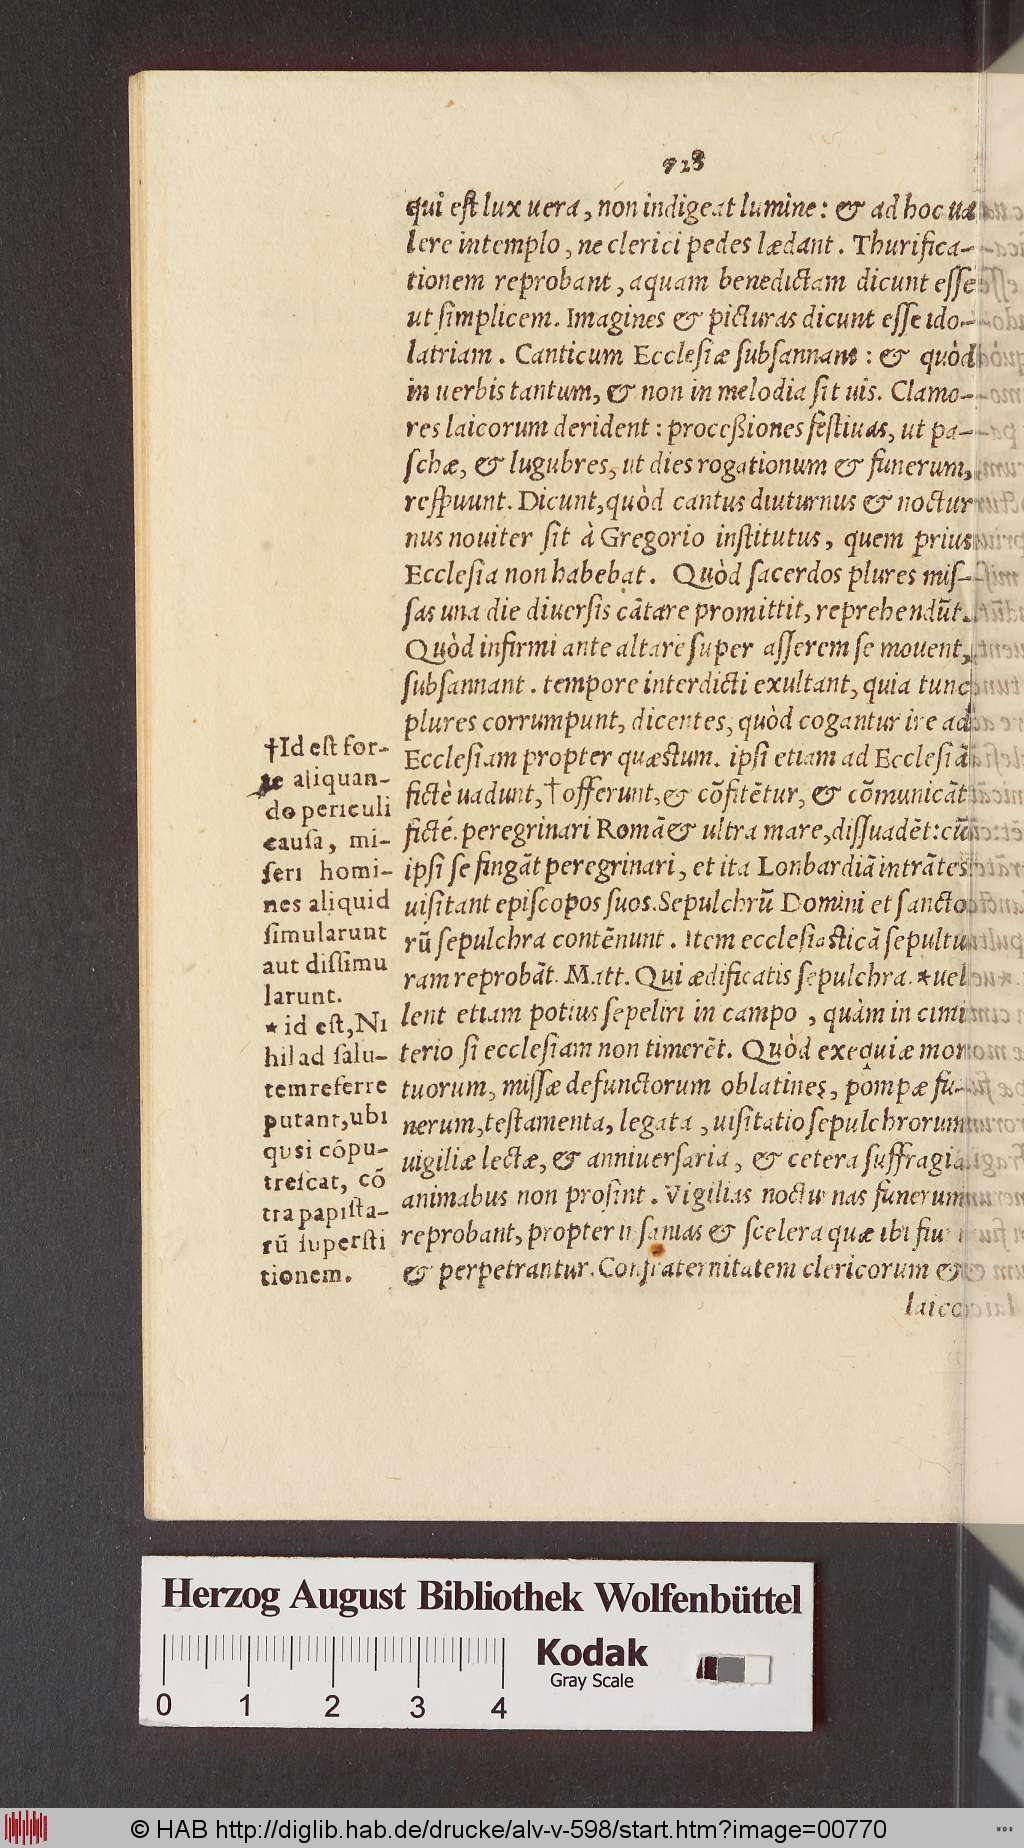 728
qui est lux uera, non indigeat lumine: & ad hoc ua
lere in templo, ne clerici pedes lædant. Thurifica-
tionem reprobant, aquam benedictam dicunt esse
ut simplicem. Imagines & picturas dicunt esse ido-
latriam. Canticum Ecclesiæ subsannant: & quòd
in uerbis tantum, & non in melodia sit uis. Clamo-
res laicorum derident: proceßiones festiuas, ut pa-
schæ, & lugubres, ut dies rogationum & funerum,
respuunt. Dicunt, quòd cantus diuturnus & noctur
nus nouiter sit à Gregorio institutus, quem prius
Ecclesia non habebat. Quòd sacerdos plures mis-
sas una die diuersis cãtare promittit, reprehendũt.
Quòd infirmi ante altare super asserem se mouent,
subsannant. tempore interdicti exultant, quia tunc
plures corrumpunt, dicentes, quòd cogantur ire ad
Ecclesiam propter quæstum. ipsi etiam ad Ecclesiã
fictè uadunt, † offerunt, & cõfitẽtur, & cõmunicãt
ficté. peregrinari Romã & ultra mare, dissuadẽt: cũ
ipsi se fingãt peregrinari, et ita Lonbardiã intrãtes
uisitant episcopos suos. Sepulchrũ Domini et sancto
rũ sepulchra contẽnunt. Item ecclesiasticã sepultu
ram reprobãt. Matt. Qui ædificatis sepulchra. * uel
lent etiam potius sepeliri in campo, quàm in cimi
terio si ecclesiam non timerẽt. Quòd exequiæ mor
tuorum, missæ defunctorum oblatines, pompæ fu-
nerum, testamenta, legata, uisitatio sepulchrorum
uigiliæ lectæ, & anniuersaria, & cetera suffragia
animabus non prosint. Vigilias nocturnas funerum
reprobant, propter insanias & scelera quæ ibi fiu
& perpetrantur. Confraternitatem clericorum &
laico
†Id est for-
te aliquan-
do periculi
causa, mi-
seri homi-
nes aliquid
simularunt
aut dissimu
larunt.
* id est, Ni
hil ad salu-
tem referre
putant, ubi
qusi cópu-
trescat, cõ
tra papista-
rũ supersti
tionem.
Herzog August Bibliothek Wolfenbüttel
Kodak
Gray Scale
0 1 2 3 4
© HAB http://diglib.hab.de/drucke/alv-v-598/start.htm?image=00770